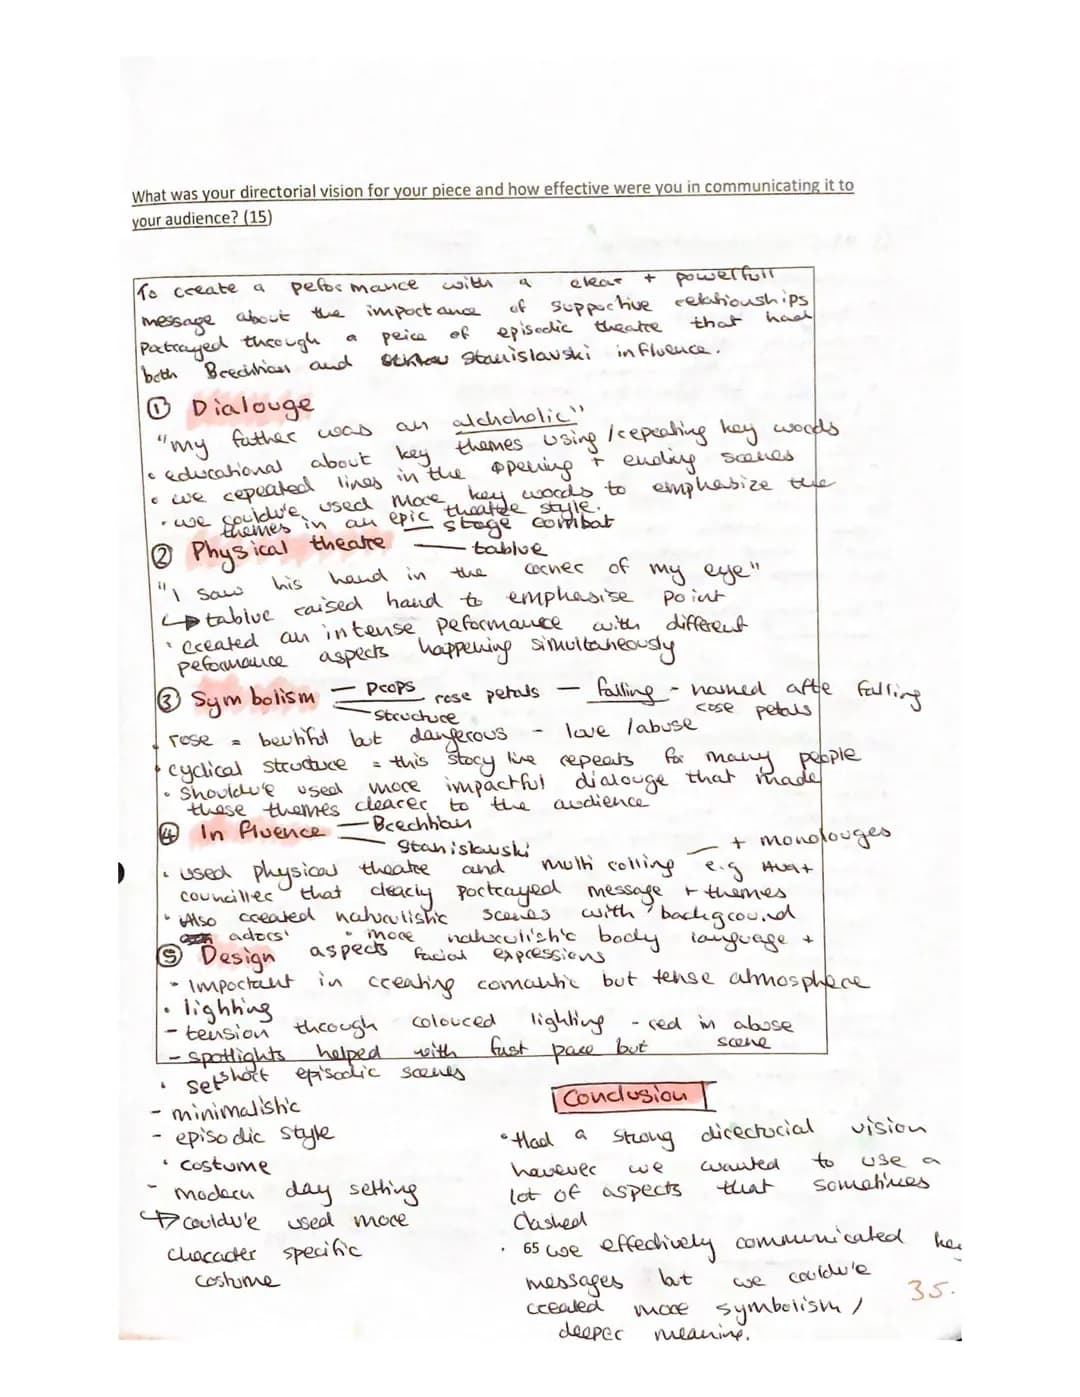 What was your directorial vision for your piece and how effective were you in communicating it to
your audience? (15)
To create a peformance with a clear + powerfull
message about the importance of supportive relationships
Patrayed through a peice of episodic theatre that had
both Brechtian and Stanislavski influence.
① Dialouge
"my father was an alchcholic"
• educational about key themes using/repeating key words
• we repeated lines in the opening + ending scenes
• we couldv'e used more key words to emphasize the
themes in an epic theatre style.
② Physical theatre — stage combat
— tablue
"I saw his hand in the corner of my eye"
↳ tablue raised hand to emphasise point
• created an intense peformance with different
peformance aspects happening simultaneously
③ Symbolism — Props rose petals — falling - named afte falling
— structure rose petals
rose = beutiful but dangerous - love /abuse
• cyclical structure = this story line repeats for many people
• Shouldv'e used more impactful dialouge that made
these themes clearer to the audience
④ Influence — Brechtian
— Stanislavski
• used physical theatre and multi rolling — + monolouges
e.g
counciller that clearly portrayed message + themes
• Also created naturalistic scenes with background
actors' • more naturalistic body language +
facial expressions
⑤ Design aspects
- important in creating romantic but tense atmosphere
• lighting
- tension through coloured lighting - red in abuse
scene
- spotlights helped with fast pace but
short episodic scenes
• set
- minimalistic
- episodic style
• costume
- modern day setting
↳ couldv'e used more
character specific
costume
Conclusion
• Had a strong directorial vision
however we wanted to use a
lot of aspects that sometimes
Clashed
• 65 we effectively communicated
messages but we couldv'e
created more symbolism /
deeper meaning.
35.